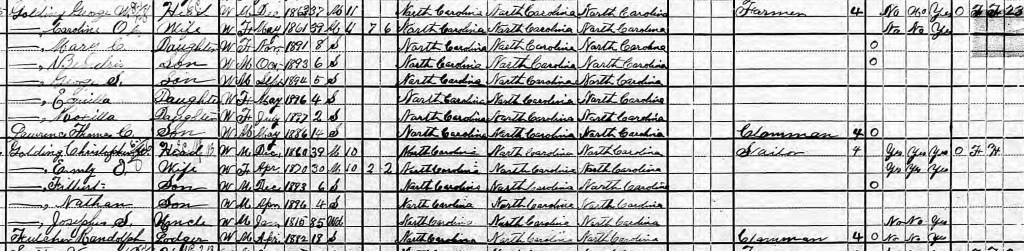 Golding George Head W M Dec 1862 37 M 11 North Carolina North Carolina North Carolina Farmer 4 No No Yes O F H 23
—, Caroline O. Wife W F May 1861 39 M 11 7 6 North Carolina North Carolina North Carolina No No Yes
—, Mary C. Daughter W F Nov 1891 8 S North Carolina North Carolina North Carolina 0
—, Son W M 1893 6 S North Carolina North Carolina North Carolina 0
—, George S. Son W M Sept 1894 5 S North Carolina North Carolina North Carolina
—, Daughter W F May 1896 4 S North Carolina North Carolina North Carolina
—, Daughter W F July 1897 2 S North Carolina North Carolina North Carolina
Lawrence Thomas C. Son W M May 1886 14 S North Carolina North Carolina North Carolina Clamman 4 0
Golding Christopher Head W M Dec 1860 39 M 10 North Carolina North Carolina North Carolina Sailor 4 Yes Yes Yes O F H
—, Emily S. Wife W F Apr 1870 30 M 10 2 2 North Carolina North Carolina North Carolina Yes Yes Yes
—, Son W M Dec 1893 6 S North Carolina North Carolina North Carolina 0
—, Nathan Son W M 1896 4 S North Carolina North Carolina North Carolina
—, Josephus S. Uncle W M Jan 1815 85 Wd North Carolina North Carolina North Carolina No No Yes
Randolph Lodger W M Apr 1882 18 S North Carolina North Carolina North Carolina Clamman 4 0 No No Yes